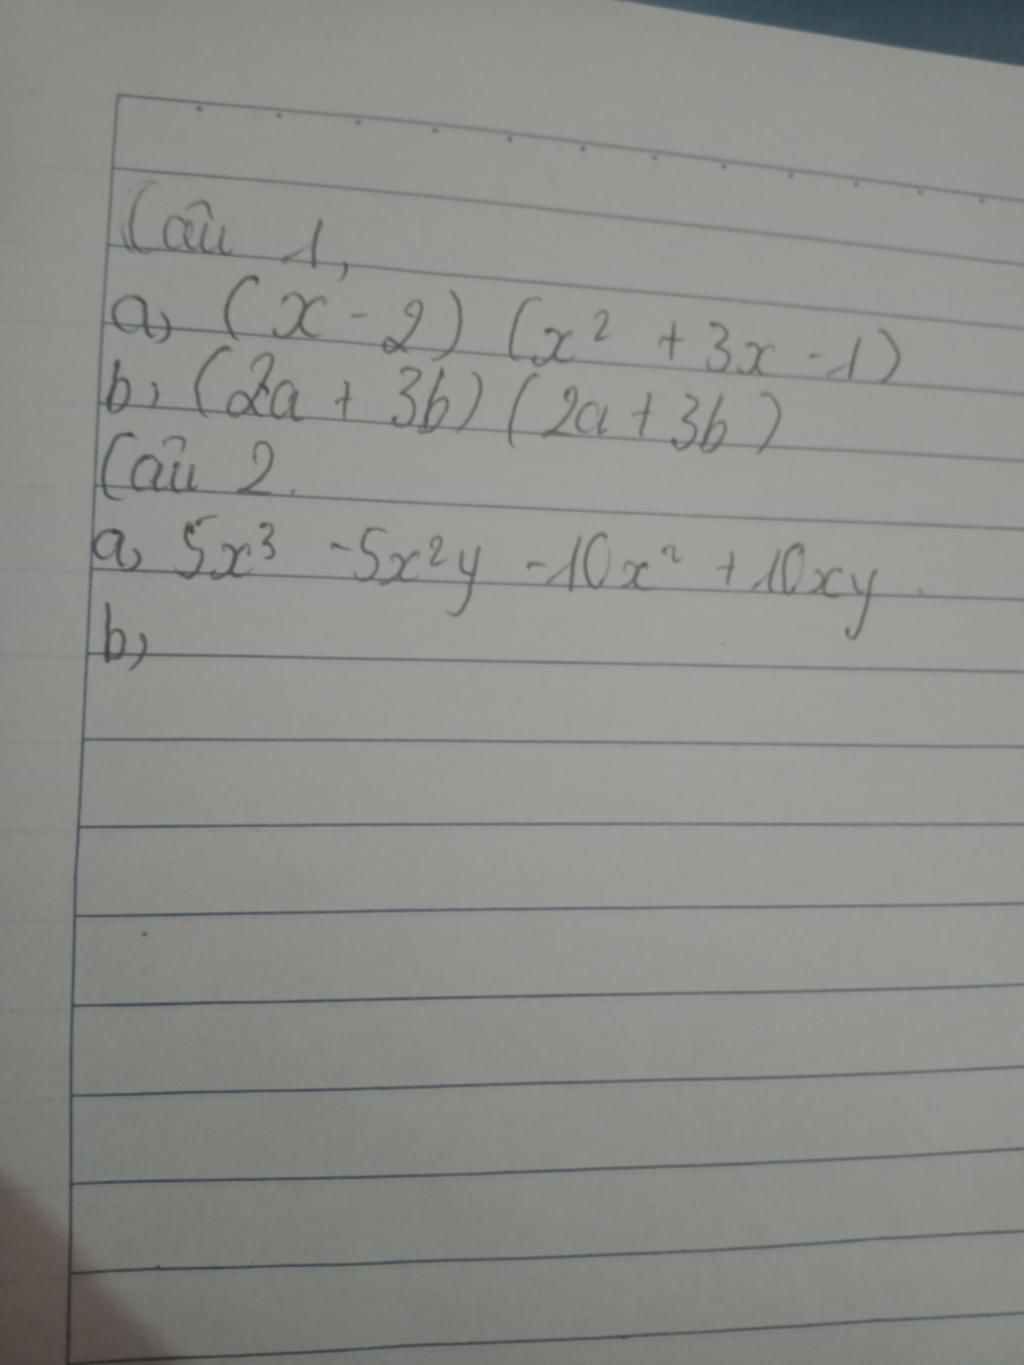 Câu 1,
a, (x - 2) (x² + 3x - 1)
b, (2a + 3b) (2a + 3b)
Câu 2.
a, 5x³ - 5x²y - 10x² + 10xy
b,